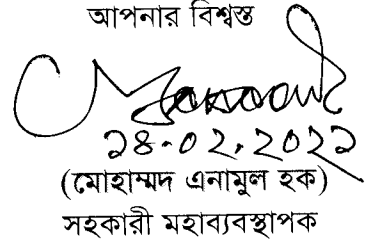 আপনার বিশ্বস্ত
১৪-০২.২০২১
(মোহাম্মদ এনামুল হক)
সহকারী মহাব্যবস্থাপক